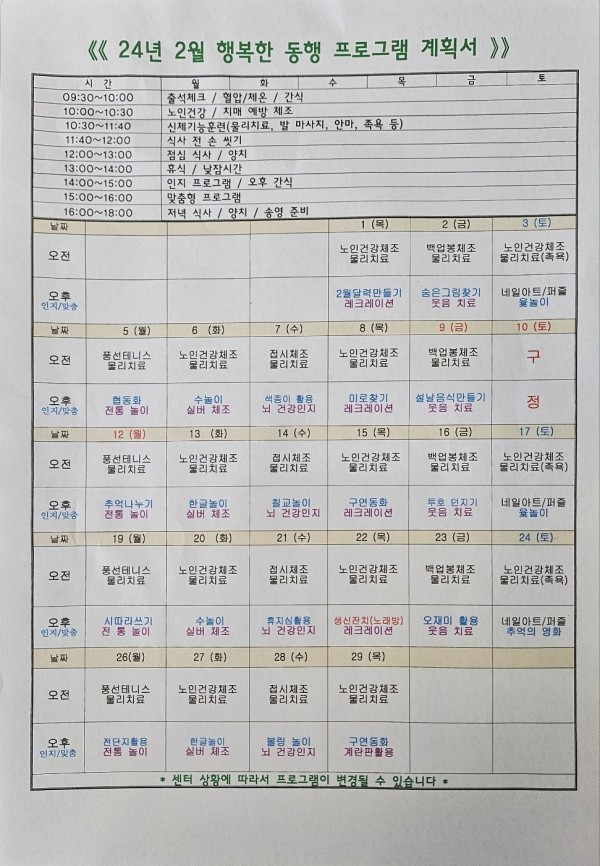 《《 24년 2월 행복한 동행 프로그램 계획서 》》
시 간 월 화 수 목 금 토
09:30~10:00 출석체크 / 혈압/체온 / 간식
10:00~10:30 노인건강 / 치매 예방 체조
10:30~11:40 신체기능훈련(물리치료, 발 마사지, 안마, 족욕 등)
11:40~12:00 식사 전 손 씻기
12:00~13:00 점심 식사 / 양치
13:00~14:00 휴식 / 낮잠시간
14:00~15:00 인지 프로그램 / 오후 간식
15:00~16:00 맞춤형 프로그램
16:00~18:00 저녁 식사 / 양치 / 송영 준비
날짜 1 (목) 2 (금) 3 (토)
오전 노인건강체조 백업봉체조 노인건강체조
물리치료 물리치료 물리치료(족욕)
오후 2월달력만들기 숨은그림찾기 네일아트/퍼즐
인지/맞춤 레크레이션 웃음 치료 윷놀이
날짜 5 (월) 6 (화) 7 (수) 8 (목) 9 (금) 10 (토)
오전 풍선테니스 노인건강체조 접시체조 노인건강체조 백업봉체조 구
물리치료 물리치료 물리치료 물리치료 물리치료
오후 협동화 수놀이 색종이 활용 미로찾기 설날음식만들기 정
인지/맞춤 전통 놀이 실버 체조 뇌 건강인지 레크레이션 웃음 치료
날짜 12 (월) 13 (화) 14 (수) 15 (목) 16 (금) 17 (토)
오전 풍선테니스 노인건강체조 접시체조 노인건강체조 백업봉체조 노인건강체조
물리치료 물리치료 물리치료 물리치료 물리치료 물리치료(족욕)
오후 추억나누기 한글놀이 칠교놀이 구연동화 투호 던지기 네일아트/퍼즐
인지/맞춤 전통 놀이 실버 체조 뇌 건강인지 레크레이션 웃음 치료 윷놀이
날짜 19 (월) 20 (화) 21 (수) 22 (목) 23 (금) 24 (토)
오전 풍선테니스 노인건강체조 접시체조 노인건강체조 백업봉체조 노인건강체조
물리치료 물리치료 물리치료 물리치료 물리치료 물리치료(족욕)
오후 시따라쓰기 수놀이 휴지심활용 생신잔치(노래방) 오재미 활용 네일아트/퍼즐
인지/맞춤 전 통 놀이 실버 체조 뇌 건강인지 레크레이션 웃음 치료 추억의 영화
날짜 26(월) 27 (화) 28 (수) 29 (목)
오전 풍선테니스 노인건강체조 접시체조 노인건강체조
물리치료 물리치료 물리치료 물리치료
오후 전단지활용 한글놀이 볼링 놀이 구연동화
인지/맞춤 전통 놀이 실버 체조 뇌 건강인지 계란판활용
* 센터 상황에 따라서 프로그램이 변경될 수 있습니다 *